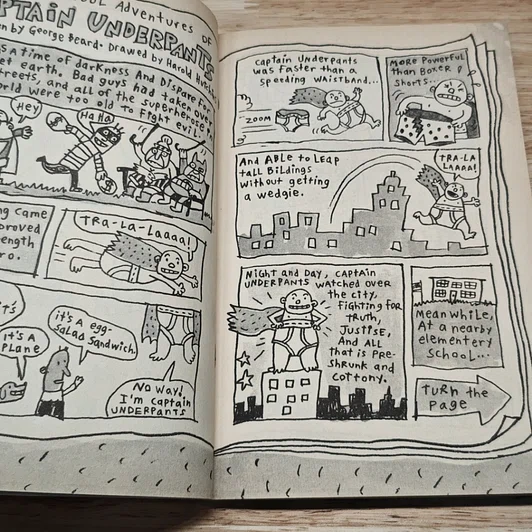 Adventures OF
CAPTAIN UNDERPANTS
by George Beard. Drawed by Harold
a time of darkNess And Dispare For
et earth. Bad guys had taken over
treets, and all of the superheroes
orld were too old to Fight evil.
Hey
Ha Ha!
came
proved
ength
ro.
TRA-LA-Laaaa!
it's A
PLANE
it's a egg-
SaLAd SANdwich.
No way!
I'm Captain
UNDERPANTS
Captain Underpants
was Faster than a
speeding WAistbaNd...
ZOOM
More Powerful
than Boxer
Shorts...
And ABle to Leap
taLL BiLdings
Without getting
a wedgie.
TRA-LA
LAAAA!
Night and Day, CAPTAIN
UNDERPANTS watched over
the city,
Fighting For
TRuth,
Justise,
And All
that is Pre-
shrunk and
cottony.
MeanWhiLe,
At a nearby
elementery
School...
TURN the
Page